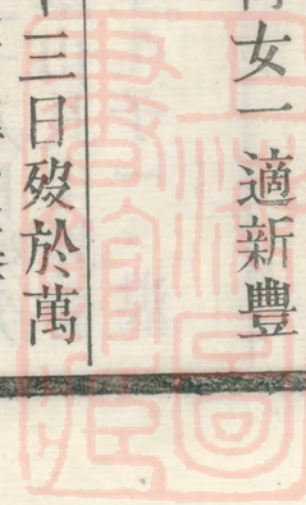 女一適新豐
三日歿於萬
上海圖書館藏